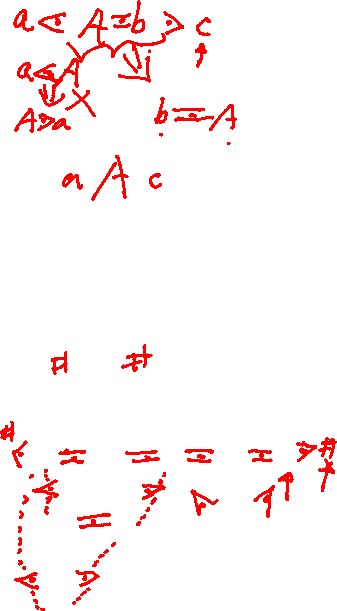 a ⋖ A ≐ b ⋗ c
a ⋖ A
A ⋗ a
b ≐ A
a A c
# #
# ⋖ ≐ ≐ ≐ ≐ ⋗ #
⋖ ⋗
≐
⋖ ⋗